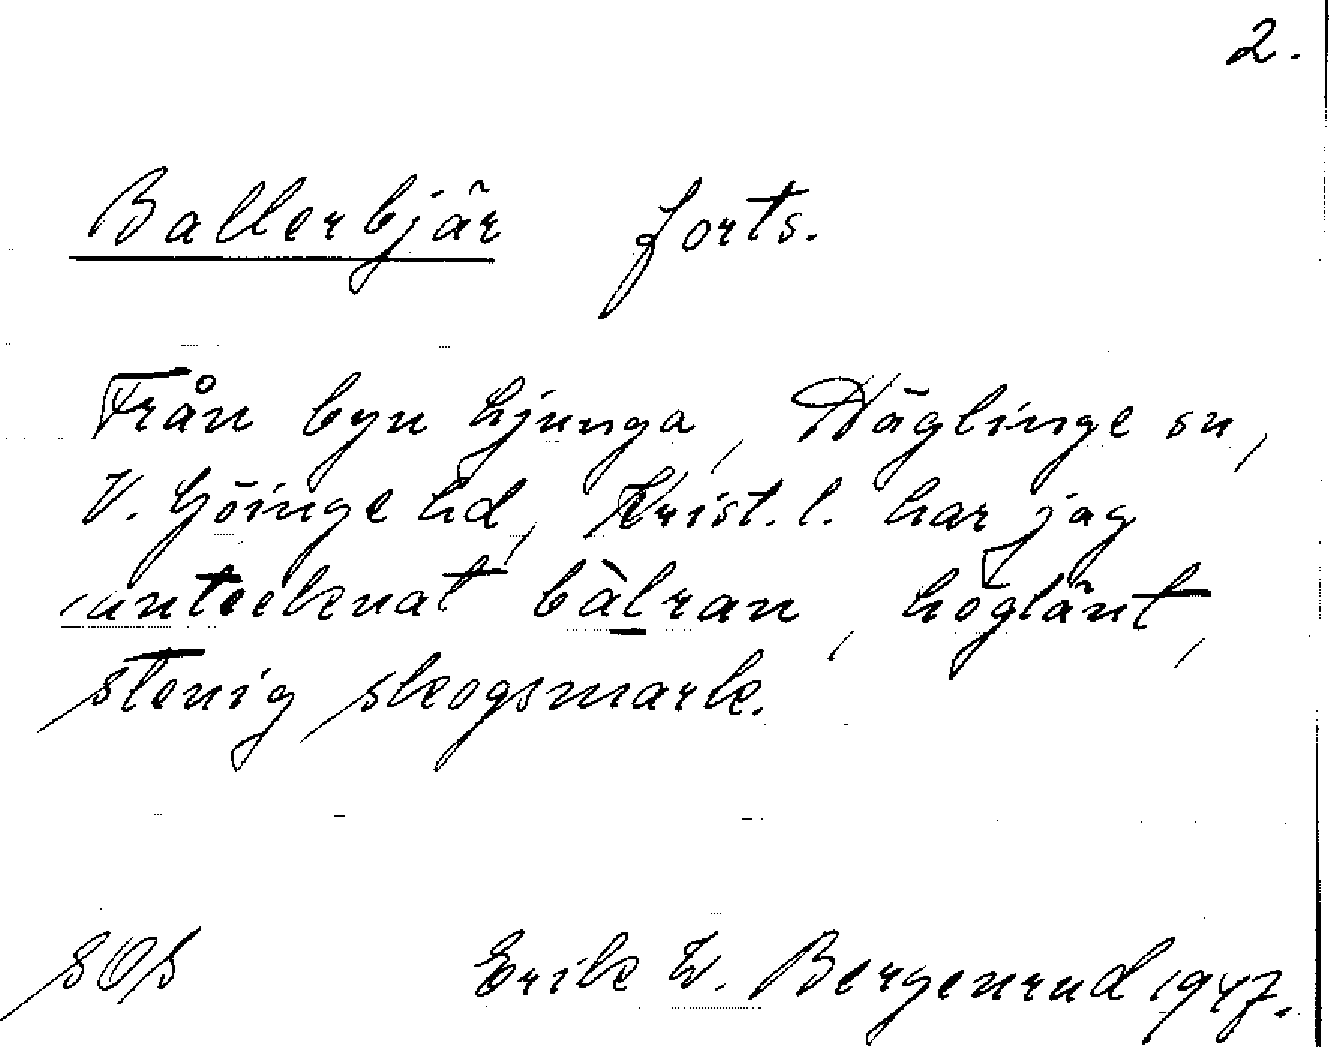 2.
Ballerbjär forts.
Från byn Ljunga, Häglinge sn,
V. Göinge hd, Krist. l. har jag
antecknat bàlran, höglänt,
stenig skogsmark.
SOS Erik W. Bergenrud 1947.